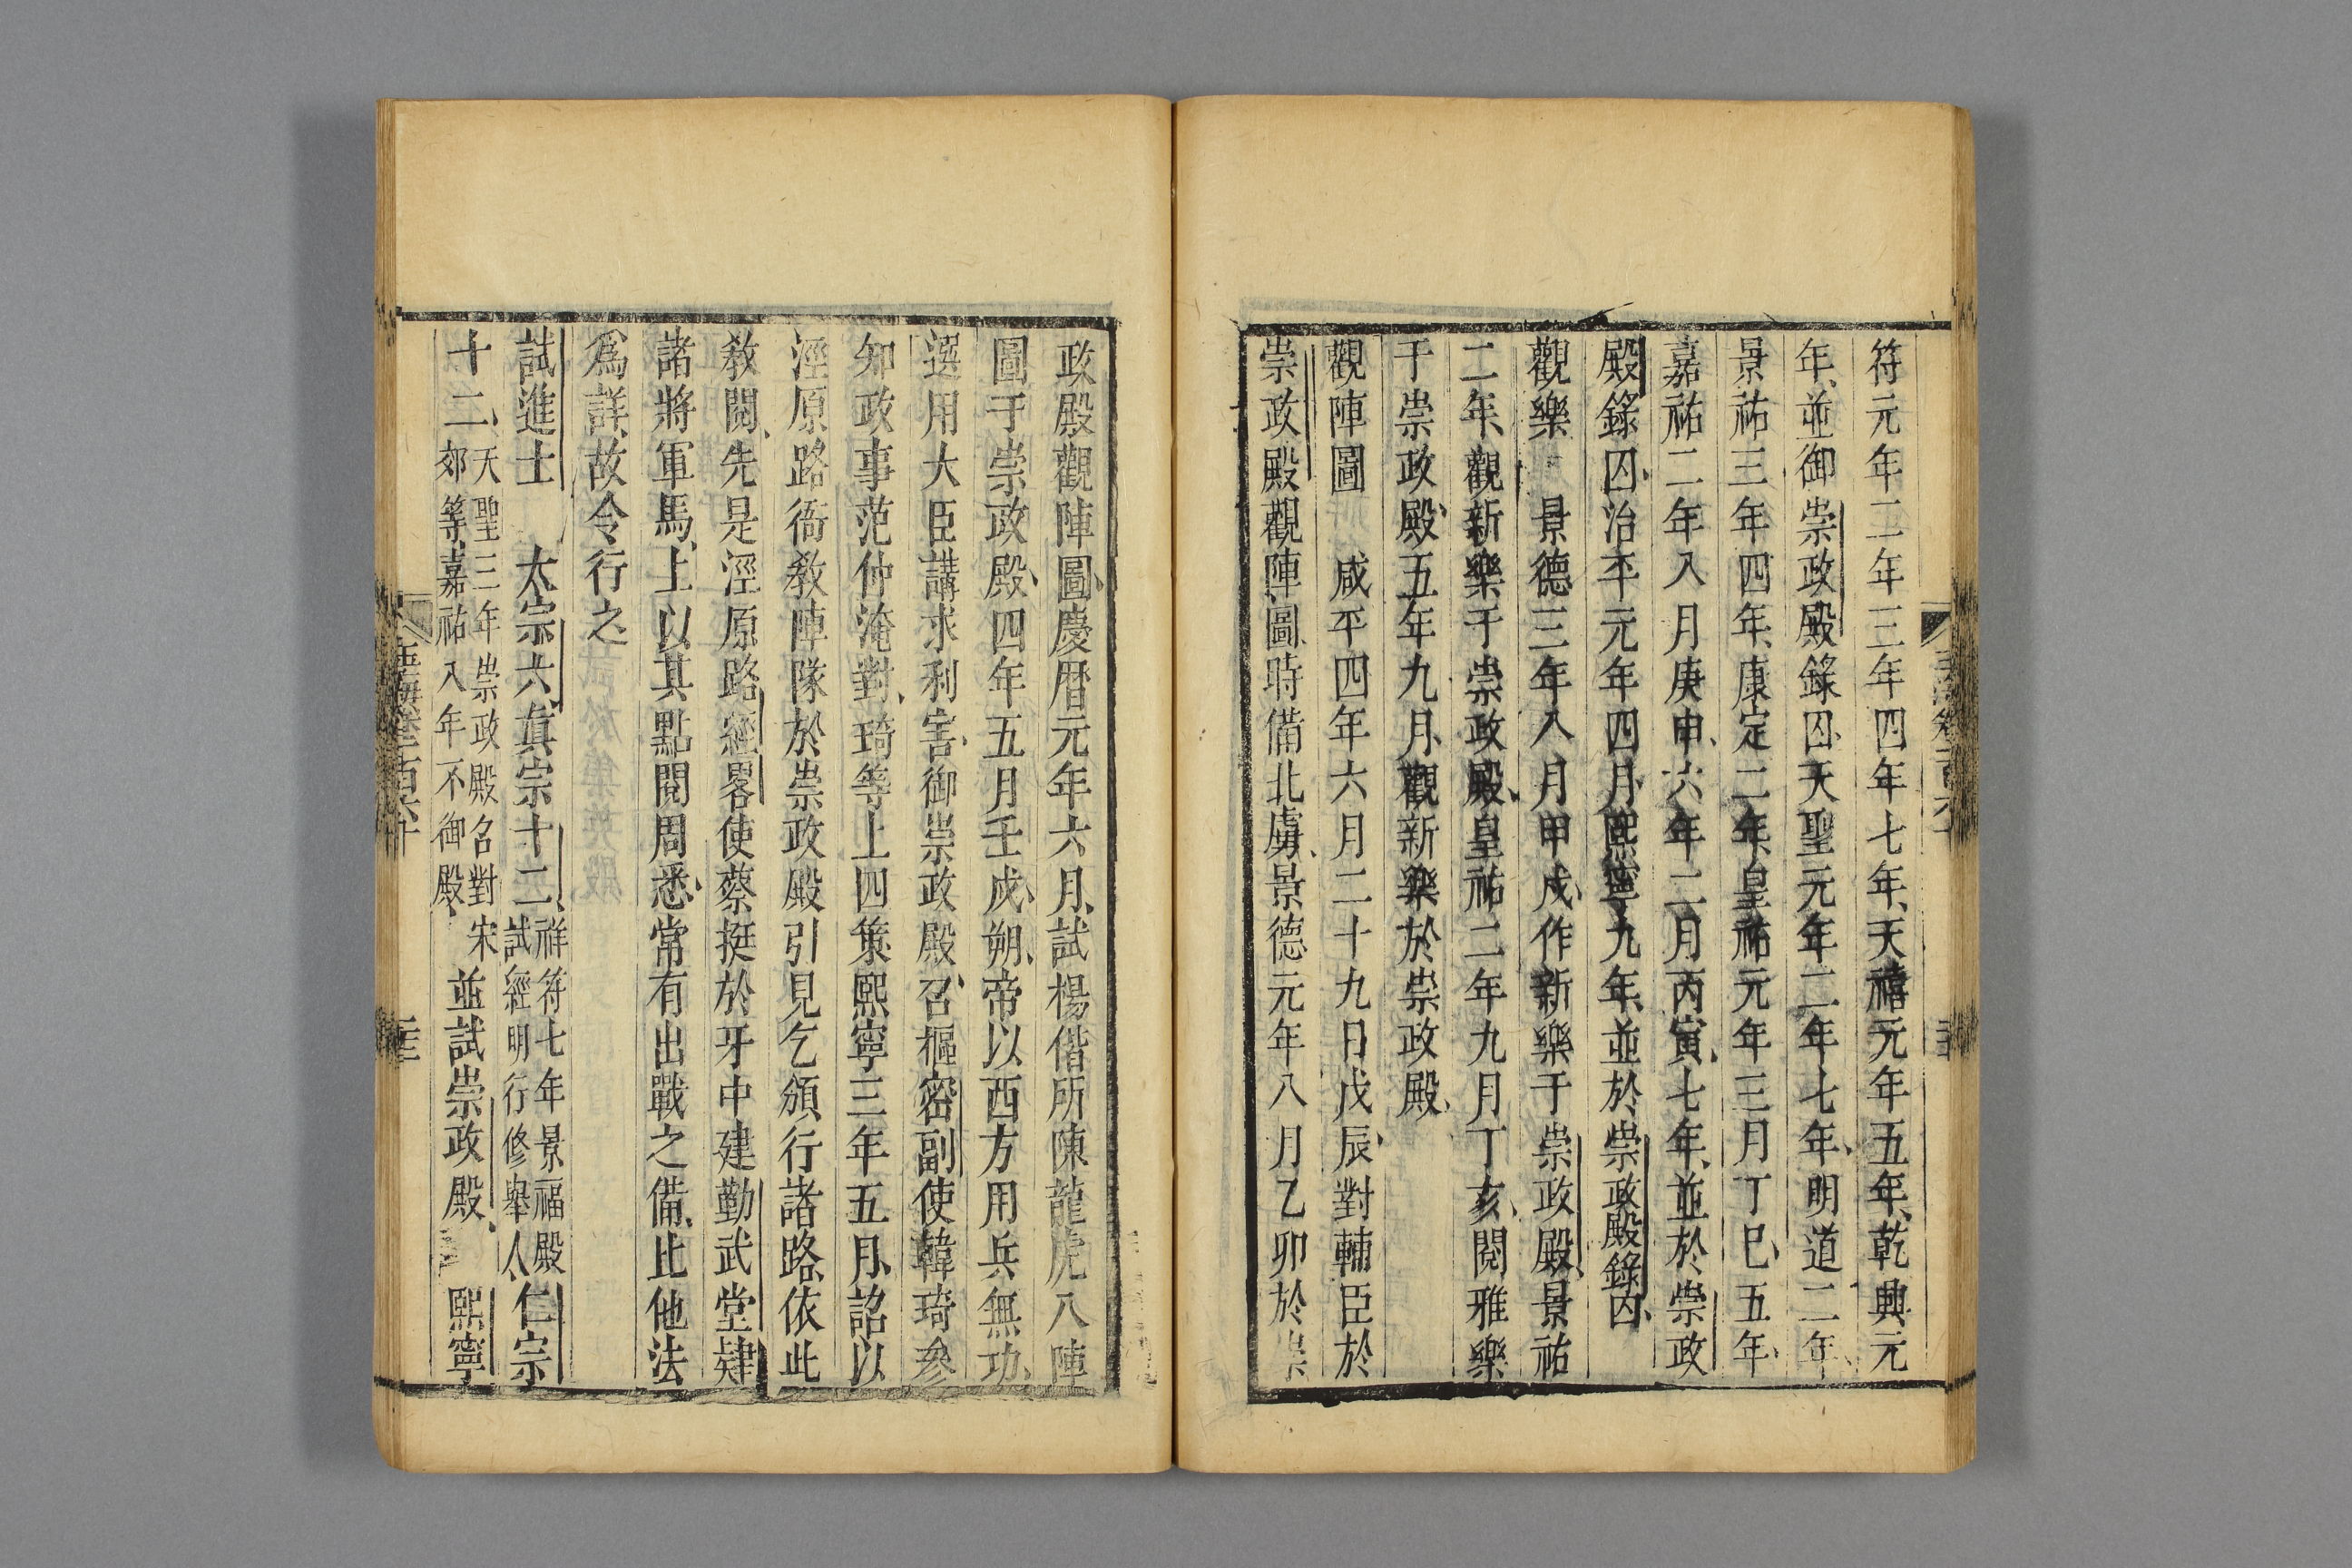 符元年二年三年四年七年、天禧元年五年、乾興元
年、並御崇政殿錄囚、天聖元年二年七年、明道二年、
景祐三年四年、康定二年、皇祐元年三月丁巳、五年、
嘉祐二年八月庚申、六年二月丙寅、七年、並於崇政
殿錄囚、治平元年四月、熙寧九年、並於崇政殿錄囚、
觀樂 景德三年八月甲戌、作新樂于崇政殿、景祐
二年、觀新樂于崇政殿、皇祐二年九月丁亥、閱雅樂
于崇政殿、五年九月、觀新樂於崇政殿、
觀陣圖 咸平四年六月二十九日戊辰、對輔臣於
崇政殿觀陣圖、時備北虜、景德元年八月乙卯於崇
政殿觀陣圖、慶曆元年六月、試楊偕所陳龍虎八陣
圖于崇政殿、四年五月壬戌朔、帝以西方用兵無功、
選用大臣講求利害、御崇政殿、召樞密副使韓琦參
知政事范仲淹對、琦等上四策熙寧三年五月、詔以
涇原路衙教陣隊於崇政殿引見乞頒行諸路、依此
教閱、先是涇原路經畧使蔡挺於牙中建勤武堂肄
諸將軍馬、上以其點閱周悉、常有出戰之備、比他法
爲詳、故令行之、
試進士 太宗六、眞宗十二、祥符七年景福殿試經明行修舉人、仁宗
十二、天聖三年崇政殿召對宋郊等、嘉祐八年不御殿、並試崇政殿、 熙寧
玉海卷一百六十